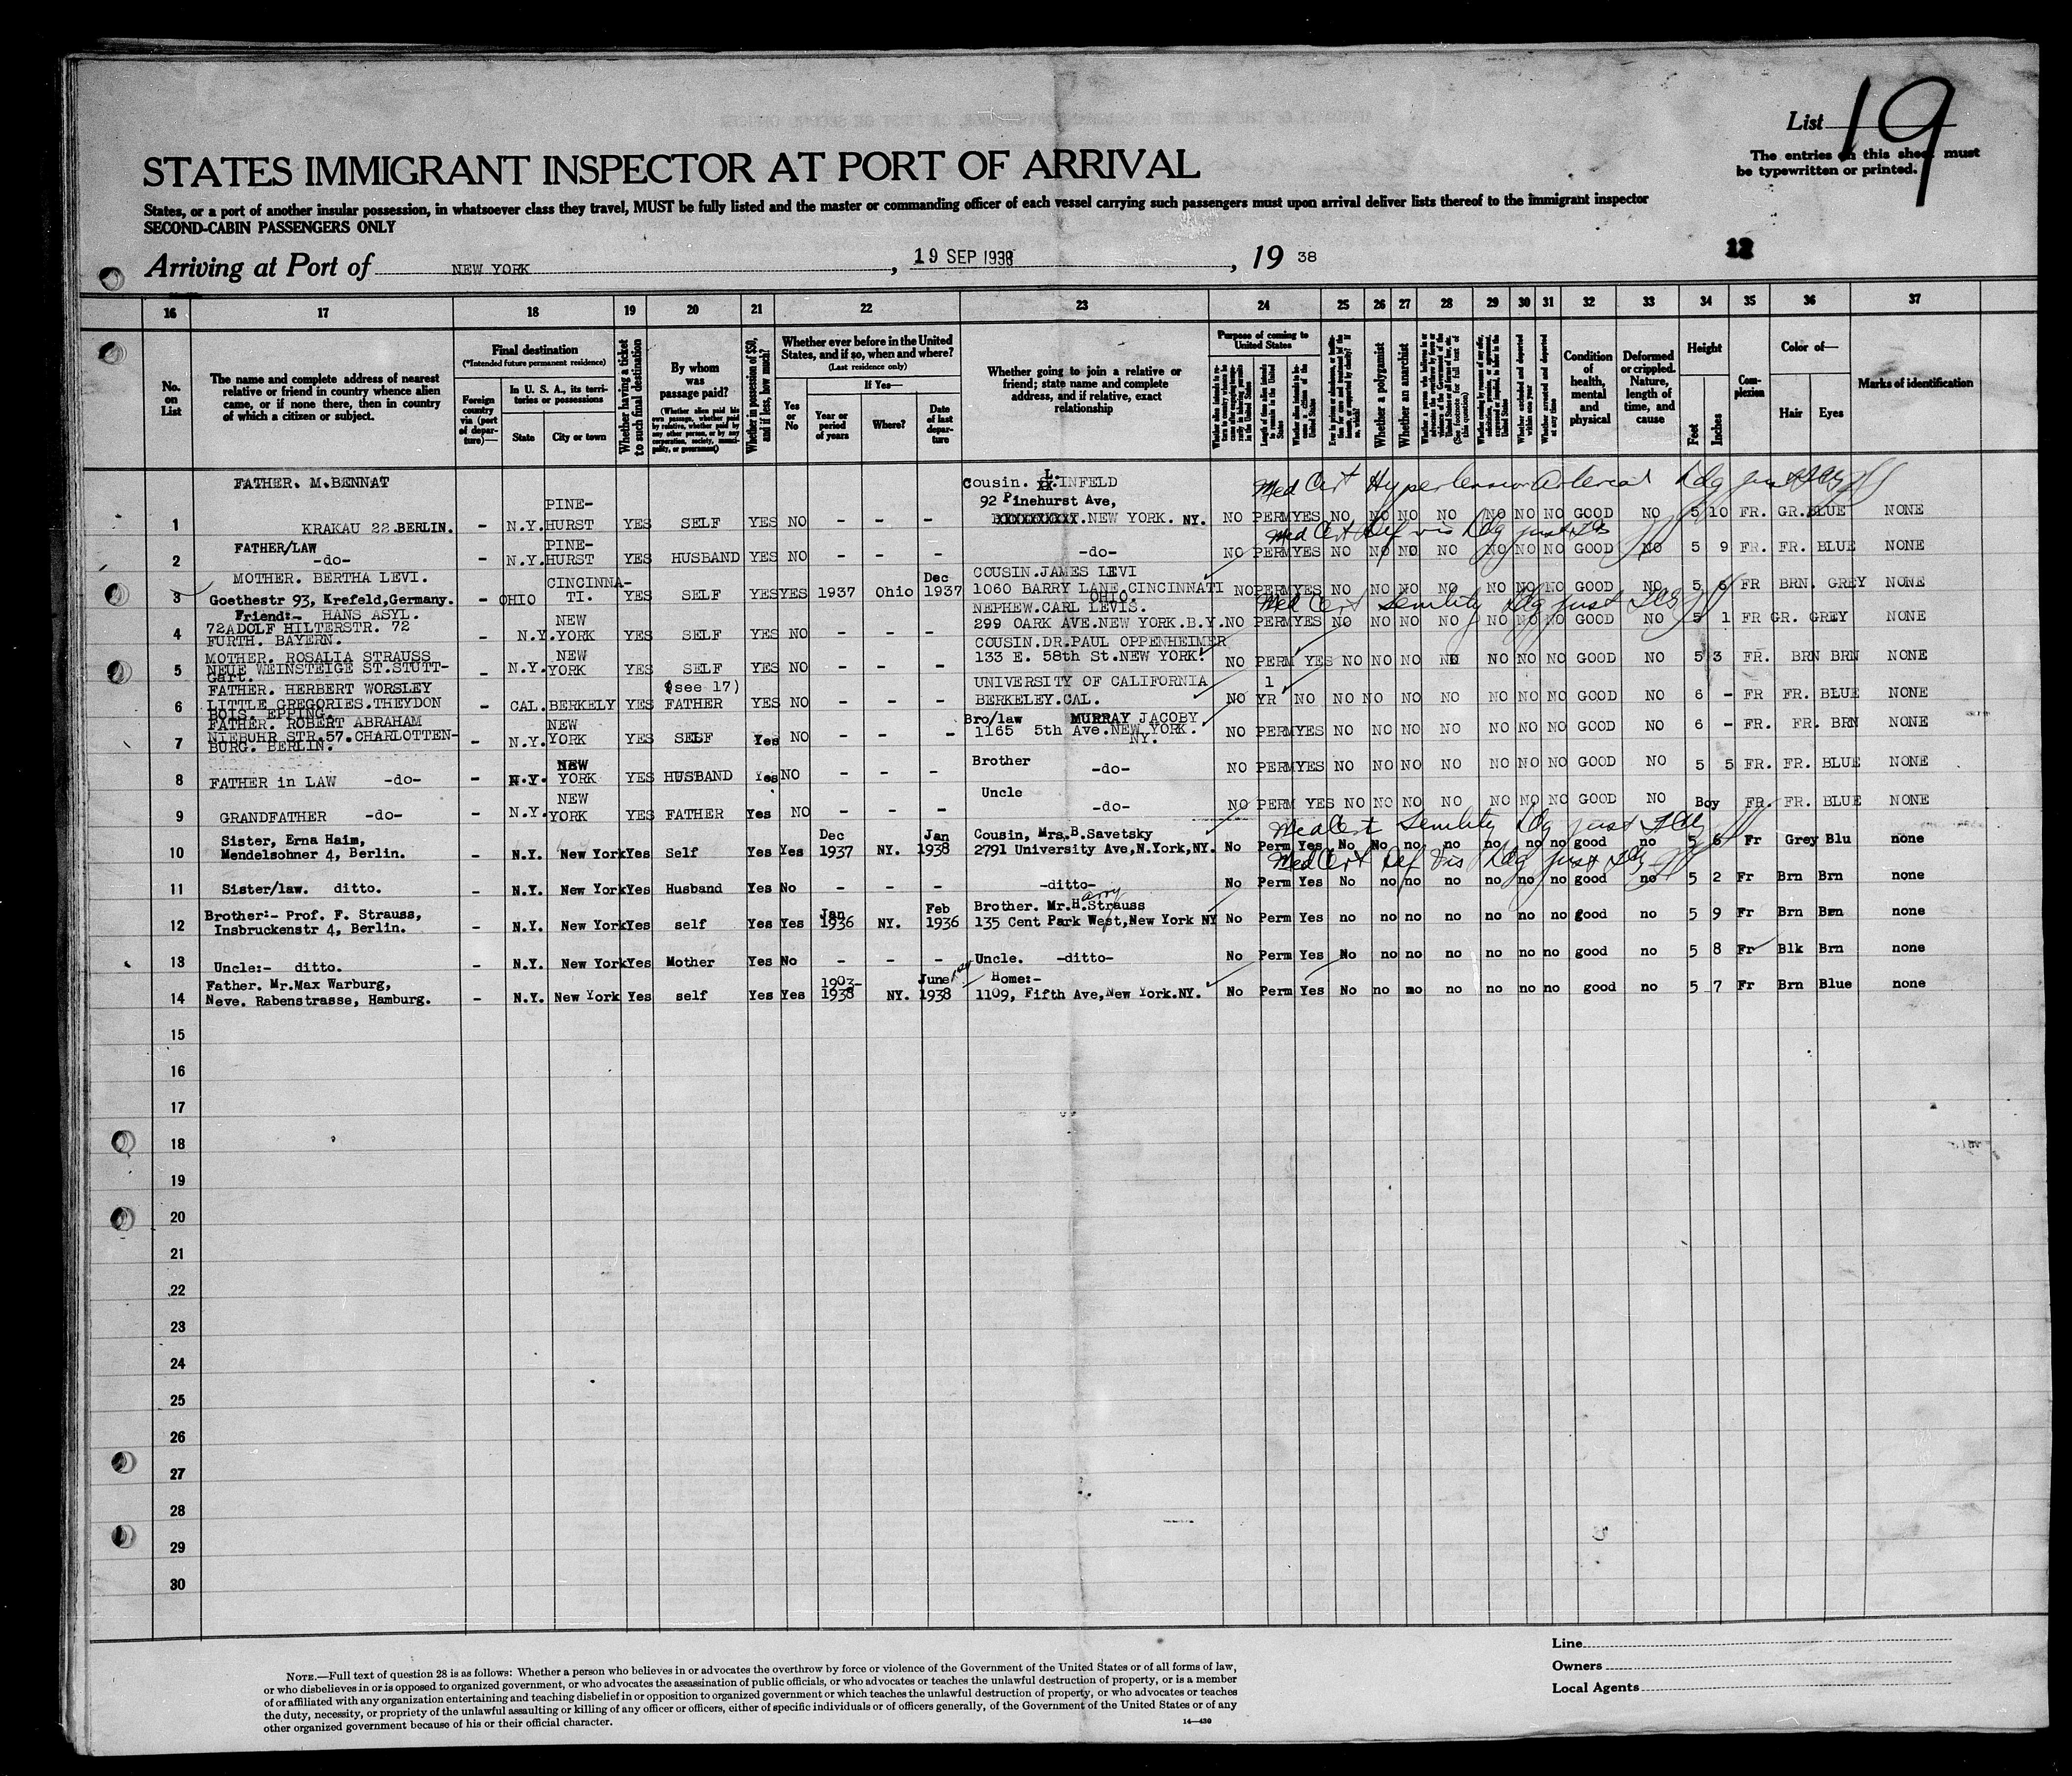 List 19
The entries on this sheet must
be typewritten or printed.
STATES IMMIGRANT INSPECTOR AT PORT OF ARRIVAL
States, or a port of another insular possession, in whatsoever class they travel, MUST be fully listed and the master or commanding officer of each vessel carrying such passengers must upon arrival deliver lists thereof to the immigrant inspector
SECOND-CABIN PASSENGERS ONLY
12
Arriving at Port of NEW YORK , 19 SEP 1938 , 19 38
16 17 18 19 20 21 22 23 24 25 26 27 28 29 30 31 32 33 34 35 36 37
No. on List
The name and complete address of nearest relative or friend in country whence alien came, or if none there, then in country of which a citizen or subject.
Final destination
(*Intended future permanent residence)
Foreign country via (port of departure)—
In U. S. A., its territories or possessions
State
City or town
Whether having a ticket to such final destination
By whom was passage paid?
(Whether alien paid his own passage, whether paid by relative, whether paid by any other person, or by any corporation, society, municipality, or government)
Whether in possession of $50, and if less, how much?
Whether ever before in the United States, and if so, when and where?
(Last residence only)
Yes or No
If Yes—
Year or period of years
Where?
Date of last departure
Whether going to join a relative or friend; state name and complete address, and if relative, exact relationship
Purpose of coming to United States
Whether a polygamist
Whether an anarchist
Whether excluded and deported within one year
Whether arrested and deported at any time
Condition of health, mental and physical
Deformed or crippled. Nature, length of time, and cause
Height
Feet
Inches
Complexion
Color of—
Hair
Eyes
Marks of identification
FATHER. M.BENNAT Cousin. L.INFELD Med Cert Hypertension Arterial
PINE- 92 Pinehurst Ave,
1 KRAKAU 22.BERLIN. - N.Y. HURST YES SELF YES NO - - - XXXXXXXXX.NEW YORK. NY. NO PERM YES NO NO NO NO NO NO NO GOOD NO 5 10 FR. GR. BLUE NONE
Med Cert Def vis Ldg just
FATHER/LAW PINE-
2 -do- - N.Y. HURST YES HUSBAND YES NO - - - -do- NO PERM YES NO NO NO NO NO NO NO GOOD NO 5 9 FR. FR. BLUE NONE
MOTHER. BERTHA LEVI. CINCINNA- Dec COUSIN.JAMES LEVI
3 Goethestr 93, Krefeld,Germany. - OHIO TI. YES SELF YES YES 1937 Ohio 1937 1060 BARRY LANE,CINCINNATI OHIO. NO PERM YES NO NO NO NO NO NO NO GOOD NO 5 6 FR BRN. GREY NONE
Med Cert Senility Ldg just
Friend:- HANS ASYL. NEPHEW.CARL LEVIS.
72ADOLF HILTERSTR. 72 NEW 299 OARK AVE.NEW YORK.B.Y.
4 FURTH. BAYERN. - N.Y. YORK YES SELF YES NO - - - NO PERM YES NO NO NO NO NO NO NO GOOD NO 5 1 FR GR. GREY NONE
MOTHER. ROSALIA STRAUSS NEW COUSIN.DR.PAUL OPPENHEIMER
5 NEUE WEINSTEIGE ST.STUTT- Gart. - N.Y. YORK YES SELF YES NO - - - 133 E. 58th St.NEW YORK. NO PERM YES NO NO NO NO NO NO NO GOOD NO 5 3 FR. BRN BRN NONE
FATHER. HERBERT WORSLEY (see 17) UNIVERSITY OF CALIFORNIA 1
6 LITTLE GREGORIES.THEYDON BOIS. EPPING. - CAL. BERKELY YES FATHER YES NO - - - BERKELEY.CAL. NO YR NO NO NO NO NO NO NO NO GOOD NO 6 - FR FR. BLUE NONE
FATHER. ROBERT ABRAHAM NEW Bro/law MURRAY JACOBY
7 NIEBUHR STR.57.CHARLOTTEN- BURG. BERLIN. - N.Y. YORK YES SELF Yes NO - - - 1165 5th Ave.NEW YORK. NY. NO PERM YES NO NO NO NO NO NO NO GOOD NO 6 - FR. FR. BRN NONE
NEW Brother
8 FATHER in LAW -do- - N.Y. YORK YES HUSBAND Yes NO - - - -do- NO PERM YES NO NO NO NO NO NO NO GOOD NO 5 5 FR. FR. BLUE NONE
NEW Uncle
9 GRANDFATHER -do- - N.Y. YORK YES FATHER Yes NO - - - -do- NO PERM YES NO NO NO NO NO NO NO GOOD NO Boy FR. FR. BLUE NONE
Med Cert Senility Ldg just
Sister, Erna Haim, Dec Jan Cousin, Mrs.B.Savetsky
10 Mendelsohner 4, Berlin. - N.Y. New York Yes Self Yes Yes 1937 NY. 1938 2791 University Ave,N.York,NY. No Perm Yes No No no no no no no good no 5 6 Fr Grey Blu none
Med Cert Def Vis Ldg just
11 Sister/law. ditto. - N.Y. New York Yes Husband Yes No - - - -ditto- No Perm Yes No no no no no no no good no 5 2 Fr Brn Brn none
Brother:- Prof. F. Strauss, Jan Feb Brother. Mr.Harry Strauss
12 Insbruckenstr 4, Berlin. - N.Y. New York Yes self Yes Yes 1936 NY. 1936 135 Cent Park West,New York NY No Perm Yes no no no no no no no good no 5 9 Fr Brn Brn none
13 Uncle:- ditto. - N.Y. New York Yes Mother Yes No - - - Uncle. -ditto- No Perm Yes No no no no no no no good no 5 8 Fr Blk Brn none
Father. Mr.Max Warburg, 1903- June Home:-
14 Neve. Rabenstrasse, Hamburg. - N.Y. New York Yes self Yes Yes 1938 NY. 1938 1109, Fifth Ave,New York.NY. No Perm Yes No no no no no no no good no 5 7 Fr Brn Blue none
15
16
17
18
19
20
21
22
23
24
25
26
27
28
29
30
Line
Owners
Local Agents
NOTE.—Full text of question 28 is as follows: Whether a person who believes in or advocates the overthrow by force or violence of the Government of the United States or of all forms of law,
or who disbelieves in or is opposed to organized government, or who advocates the assassination of public officials, or who advocates or teaches the unlawful destruction of property, or is a member
of or affiliated with any organization entertaining and teaching disbelief in or opposition to organized government or which teaches the unlawful destruction of property, or who advocates or teaches
the duty, necessity, or propriety of the unlawful assaulting or killing of any officer or officers, either of specific individuals or of officers generally, of the Government of the United States or of any
other organized government because of his or their official character.
14—430